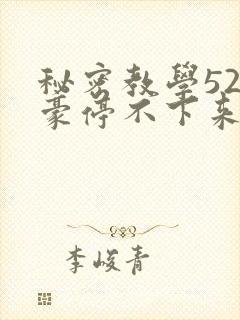 秘密教學52
豪停不下来
李峻青